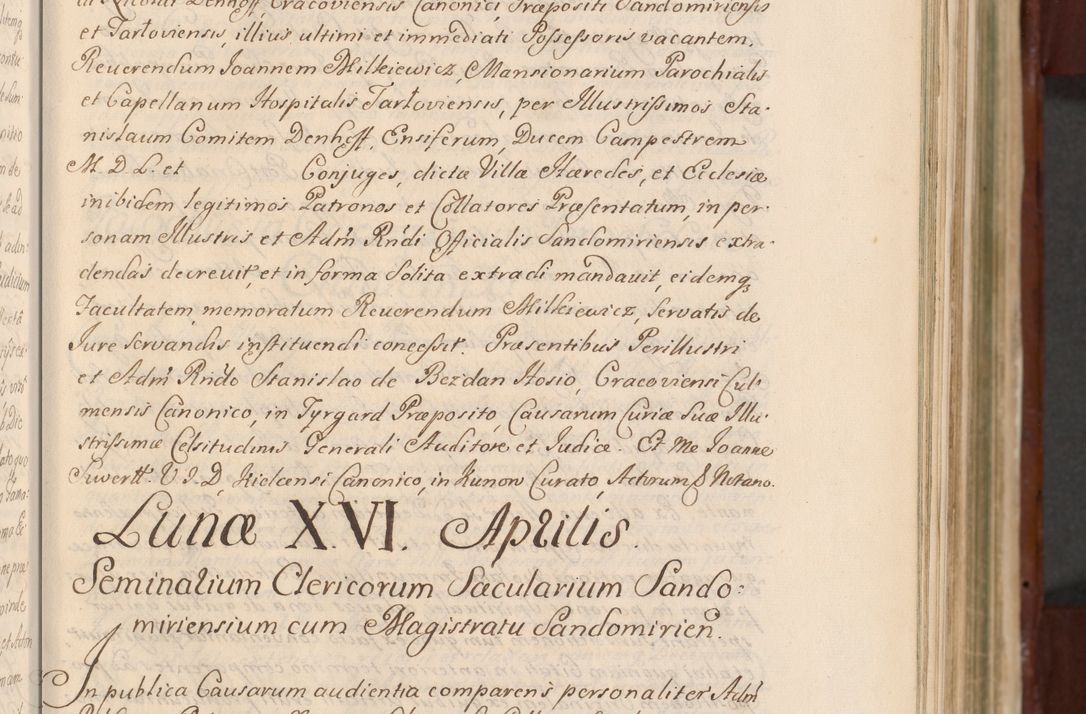 di Nicolai Denhoff Cracoviensis Canonici Præpositi Sandomiriensis
et Tarłoviensis, illius ultimi et immediati Possessoris vacantem.
Reuerendum Joannem Milkiewicz, Mansionarium Parochialis
et Capellanum Hospitalis Tarłoviensis, per Illustrissimos Sta-
nislaum Comitem Denhoff, Ensiferum, Ducem Campestrem
M. D. L. et Conjuges, dictæ Villæ Hæredes, et Ecclesiæ
inibidem legitimos Patronos et Collatores Præsentatum, in per-
sonam Illustris et Adm Rndi Officialis Sandomiriensis extra-
dendas decrevit, et in forma solita extradi mandauit, eidemq
Facultatem memoratum Reuerendum Milkiewicz, servatis de
Jure servandis instituendi concessit. Præsentibus Perillustri
et Adm Rndo Stanislao de Bezdan Hosio, Cracoviensi Cul-
mensis Canonico, in Tyrgard Præposito, Causarum Curiæ Suæ Illu-
strissimæ Celsitudinis Generali Auditore et Judice. Et Me Joanne
Suwertt. V. J. D. Kielcensi Canonico, in Kunow Curato, Actorum & Notario.
Lunæ X.VI. Aprilis.
Seminarium Clericorum Sæcularium Sando:
miriensium cum Magistratu Sandomirien.
In publica Causarum audientia comparens personaliter Adm